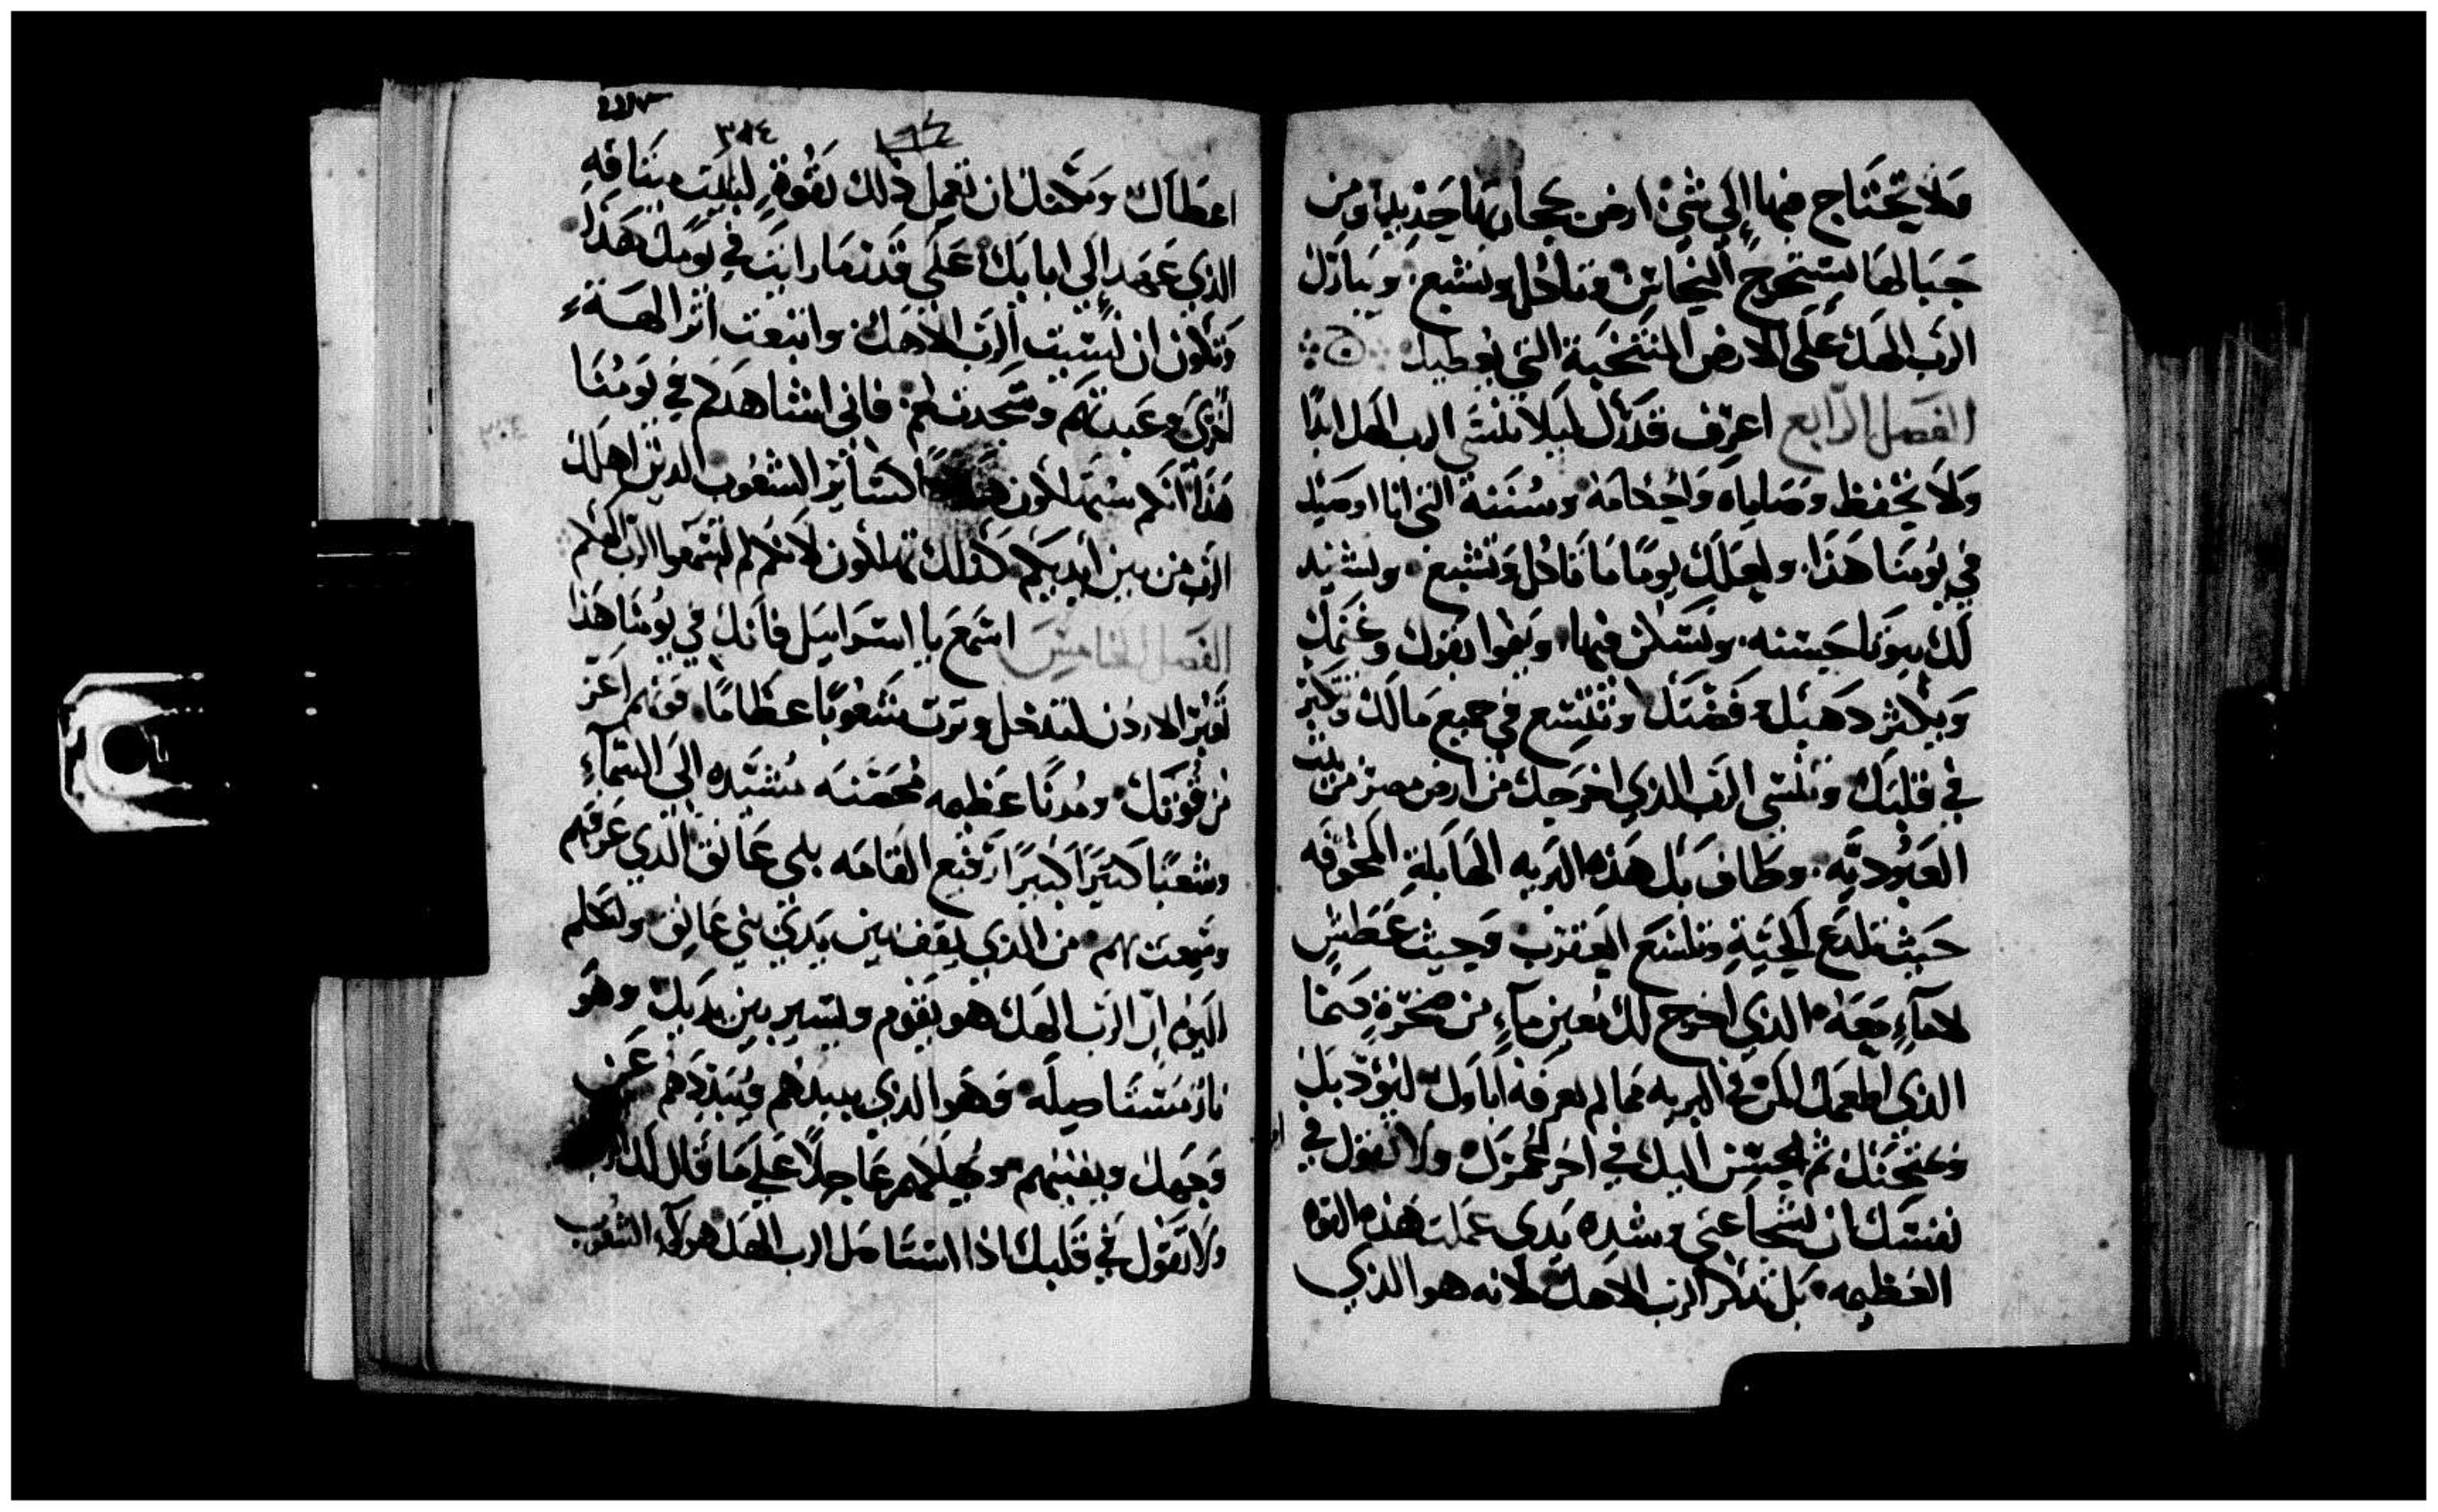 ولا يحتاج فيها الي شي ارض حجارتها حديد ومن
جبالها يستخرج النحاس فتاكل وتشبع وتبارك
الرب الهك علي الارض المنتخبة التي يعطيك
الفصل الرابع اعرف قدرك ليلا تنسي الرب الهك ابدًا
ولا تحفظ وصاياه واحكامه وسننه التي انا اوصيك
في يومنا هذا ولعلك يومًا ما تاكل وتشبع وتشيد
لك بيوتا حسنه وتسكن فيها وينموا بقرك وغنمك
ويكثر دهبك وفضتك وتتسع في جميع مالك وتكبر
في قلبك وتنسي الرب الذي اخرجك من ارض مصر من بيت
العبوديه وطاف بك هذه البريه الهايلة المخوفه
حيث تلدع الحية وتلسع العقرب وحيث عطش
لا ماء معه الذي اخرج لك معين ماء من صخرة صما
الذي اطعمك المن في البريه مما لم يعرفه اباوك ليودبك
ويمتحنك ثم يحسن اليك في اخر عمرك ولا تقول في
نفسك ان شجاعتي وشدة يدي عملت هذه القوه
العظيمه بل تذكر الرب الاهك لانه هو الذي
٣٨٤
اعطاك ومكنك ان تعمل ذلك بقوة ليثبت ميثاقه
الذي عهد الي ابايك علي قدر ما رايت في يومك هذا
وتكون ان نسيت الرب الاهك واتبعت اثر الهة
اخري وعبدتهم وسجدت لهم فاني اشاهدكم في يومنا
هذا انكم ستهلكون كسائر الشعوب الذين اهلك
الرب من بين ايديكم كذلك تهلكون لانكم لم تسمعوا الرب الهكم
الفصل الخامس اسمع يا اسرايل فانك في يومنا هذا
تعبر الاردن لتدخل وترث شعوبًا عظامًا قوتهم اعز
من قوتك ومدنًا عظيمه محصنه مشيده الي السماء
وشعبًا كثيرًا كبيرًا رفيع القامه بني عانق الذي عرفتهم
وسمعت بهم من الذي يقف بين يدي بني عانق وتعلم
اليوم ان الرب الهك هو يقوم ويسير بين يديك وهو
نار مستاصله وهو الذي يبيدهم ويبددهم عن
وجهك ويفنيهم ويهلكهم عاجلًا علي ما قال لك
ولا تقول في قلبك اذا استاصل الرب الهك هولاء الشعوب